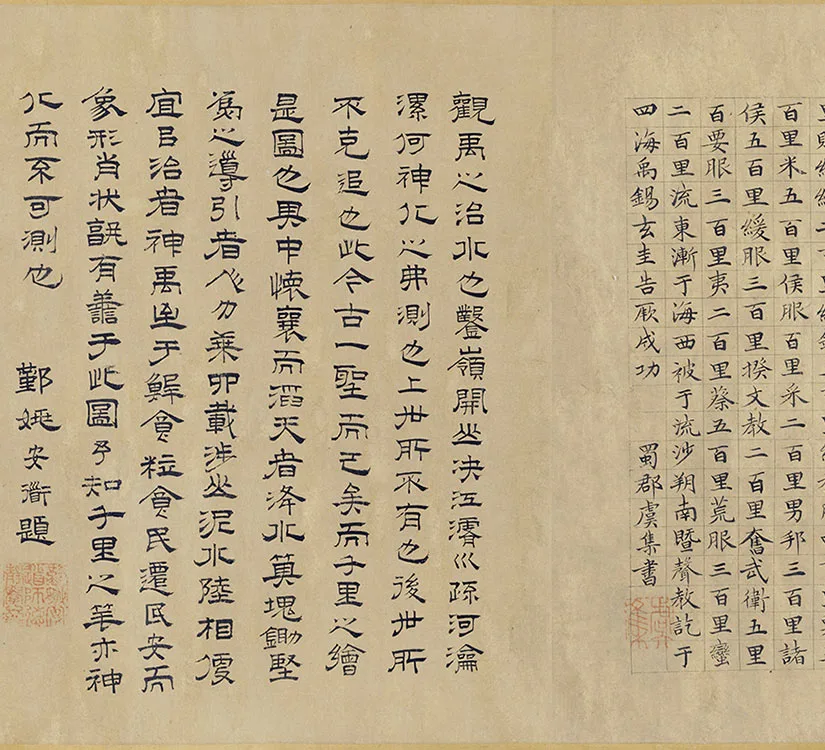 百里米五百里侯服百里采二百里男邦三百里諸
侯五百里綏服三百里揆文教二百里奮武衛五里
百要服三百里夷二百里蔡五百里荒服三百里蠻
二百里流東漸于海西被于流沙朔南暨聲教訖于
四海禹錫玄圭告厥成功 蜀郡虞集書
觀禹之治水也鑿嶺開山決江濬巛疏河瀹
漯何神化之弗測也上世所不有也後世所
不克追也此今古一聖而已矣而千里之繪
是圖也其中懷襄而滔天者洚水塊鋤堅
為之導引者人力乘載涉山泥水陸相
宜㠯治者神禹至于鮮食粒食民遷民安而
象形肖狀有善于此圖乎知千里之筆亦神
化而不可測也 鄞姚安衜題